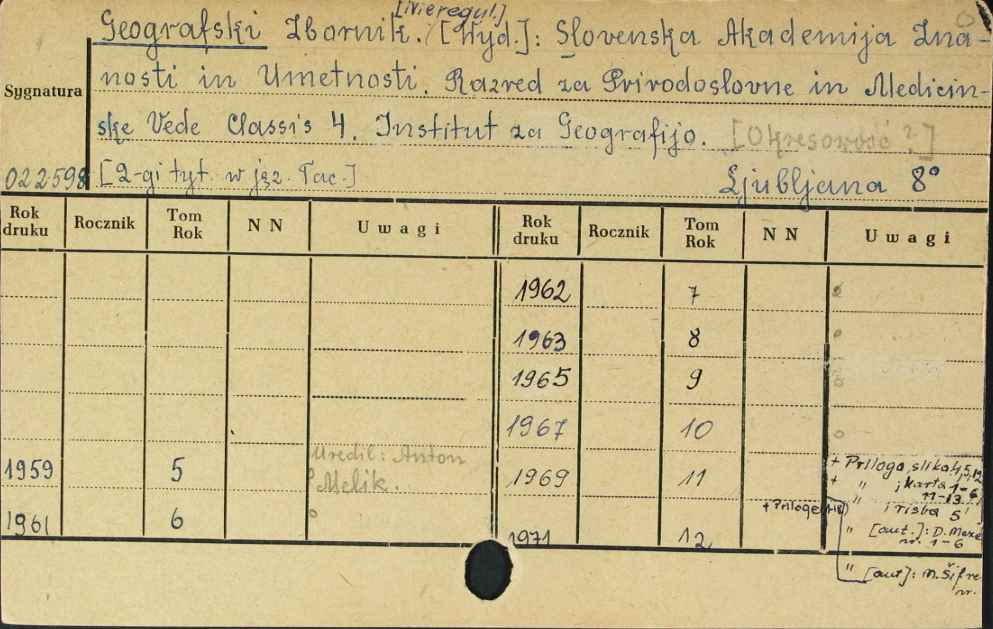 [Nieregul.]
Geografski Zbornik. [Wyd.]: Slovenska Akademija Zna-
nosti in Umetnosti. Razred za Prirodoslovne in Medicin-
Sygnatura
ske Vede Classis 4. Institut za Geografijo. [Okresowość ?]
022598 [2-gi tyt. w jęz. łac.] Ljubljana 8°
Rok druku Rocznik Tom Rok NN Uwagi Rok druku Rocznik Tom Rok NN Uwagi
1962 7
1963 8
1965 9
1967 10
1959 5 Uredil: Anton Melik. 1969 11 + Priloga, slika 4, 5, 12
+ " , karta 1-6
11-13
1961 6 + Priloge " , risba 5
1971 12 " [aut.]: D. Meze
nr. 1-6
" [aut]: M. Šifre
nr.